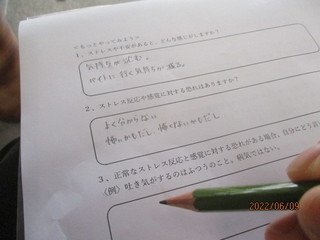 ＜もっとやってみよう＞
1．ストレスや不安があると、どんな感じがしますか？
気持ちが沈む。
バイトに行く気持ちが減る。
2．ストレス反応や感覚に対する恐れはありますか？
よく分からない
怖いかもだし、怖くないかもだし
3．正常なストレス反応と感覚に対する恐れがある場合、自分にどう
（例）吐き気がするのはふつうのこと。病気ではない。
2022/06/09